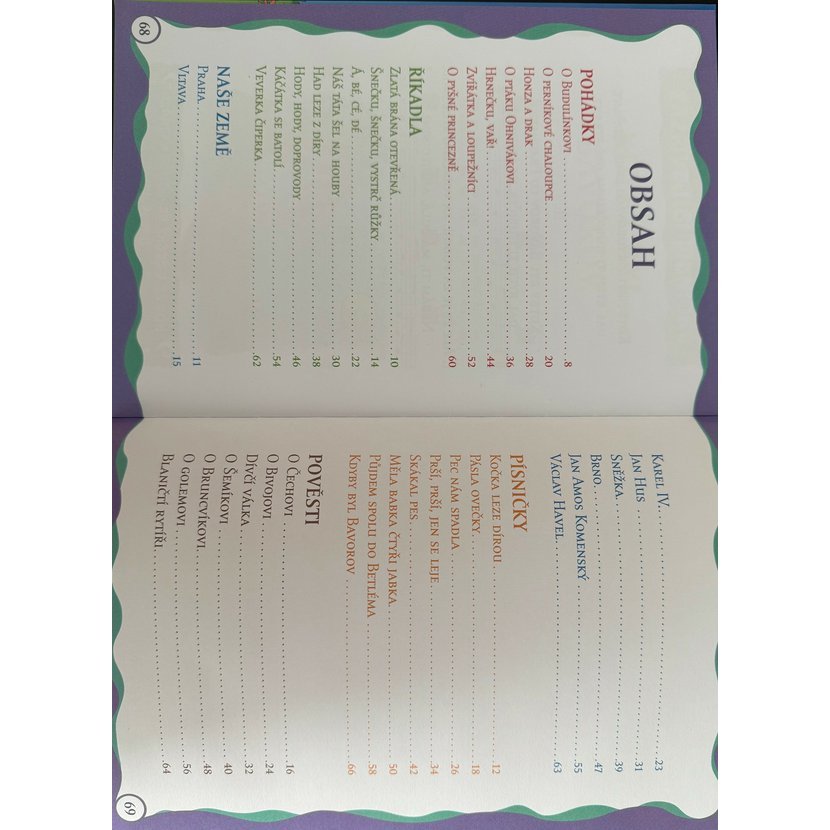 OBSAH
POHÁDKY
O Budulínkovi . . . . . . . . . . . . . . . . . . . . . . . . . 8
O perníkové chaloupce . . . . . . . . . . . . . . . . . . . . 20
Honza a drak . . . . . . . . . . . . . . . . . . . . . . . . . 28
O ptáku Ohnivákovi . . . . . . . . . . . . . . . . . . . . . . 36
Hrnečku, vař! . . . . . . . . . . . . . . . . . . . . . . . . . 44
Zvířátka a loupežníci . . . . . . . . . . . . . . . . . . . . 52
O pyšné princezně . . . . . . . . . . . . . . . . . . . . . . 60
ŘÍKADLA
Zlatá brána otevřená . . . . . . . . . . . . . . . . . . . . 10
Šnečku, šnečku, vystrč růžky . . . . . . . . . . . . . . . . 14
Á, bé, cé, dé . . . . . . . . . . . . . . . . . . . . . . . . . 22
Náš táta šel na houby . . . . . . . . . . . . . . . . . . . . 30
Had leze z díry . . . . . . . . . . . . . . . . . . . . . . . . 38
Hody, hody, doprovody . . . . . . . . . . . . . . . . . . . . 46
Káčátka se batolí . . . . . . . . . . . . . . . . . . . . . . 54
Veverka Čiperka . . . . . . . . . . . . . . . . . . . . . . . . 62
NAŠE ZEMĚ
Praha . . . . . . . . . . . . . . . . . . . . . . . . . . . . . 11
Vltava . . . . . . . . . . . . . . . . . . . . . . . . . . . . 15
68
Karel IV. . . . . . . . . . . . . . . . . . . . . . . . . . . . 23
Jan Hus . . . . . . . . . . . . . . . . . . . . . . . . . . . . 31
Sněžka . . . . . . . . . . . . . . . . . . . . . . . . . . . . 39
Brno . . . . . . . . . . . . . . . . . . . . . . . . . . . . . 47
Jan Amos Komenský . . . . . . . . . . . . . . . . . . . . . . 55
Václav Havel . . . . . . . . . . . . . . . . . . . . . . . . . 63
PÍSNIČKY
Kočka leze dírou . . . . . . . . . . . . . . . . . . . . . . . 12
Pásla ovečky . . . . . . . . . . . . . . . . . . . . . . . . . 18
Pec nám spadla . . . . . . . . . . . . . . . . . . . . . . . . 26
Prší, prší, jen se leje . . . . . . . . . . . . . . . . . . . 34
Skákal pes . . . . . . . . . . . . . . . . . . . . . . . . . . 42
Měla babka čtyři jabka . . . . . . . . . . . . . . . . . . . . 50
Půjdem spolu do Betléma . . . . . . . . . . . . . . . . . . . 58
Kdyby byl Bavorov . . . . . . . . . . . . . . . . . . . . . . 66
POVĚSTI
O Čechovi . . . . . . . . . . . . . . . . . . . . . . . . . . . 16
O Bivojovi . . . . . . . . . . . . . . . . . . . . . . . . . . 24
Dívčí válka . . . . . . . . . . . . . . . . . . . . . . . . . . 32
O Šemíkovi . . . . . . . . . . . . . . . . . . . . . . . . . . 40
O Bruncvíkovi . . . . . . . . . . . . . . . . . . . . . . . . . 48
O golemovi . . . . . . . . . . . . . . . . . . . . . . . . . . 56
Blaničtí rytíři . . . . . . . . . . . . . . . . . . . . . . . . 64
69